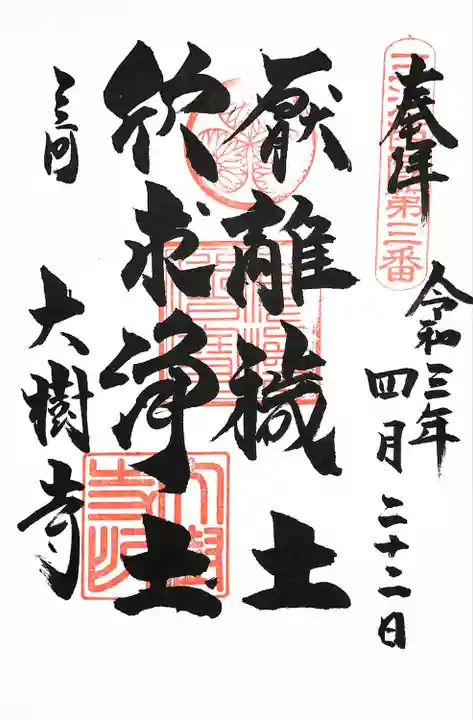 奉拝
第三番
令和三年
四月二十二日
厭離穢土
欣求浄土
三河
大樹寺